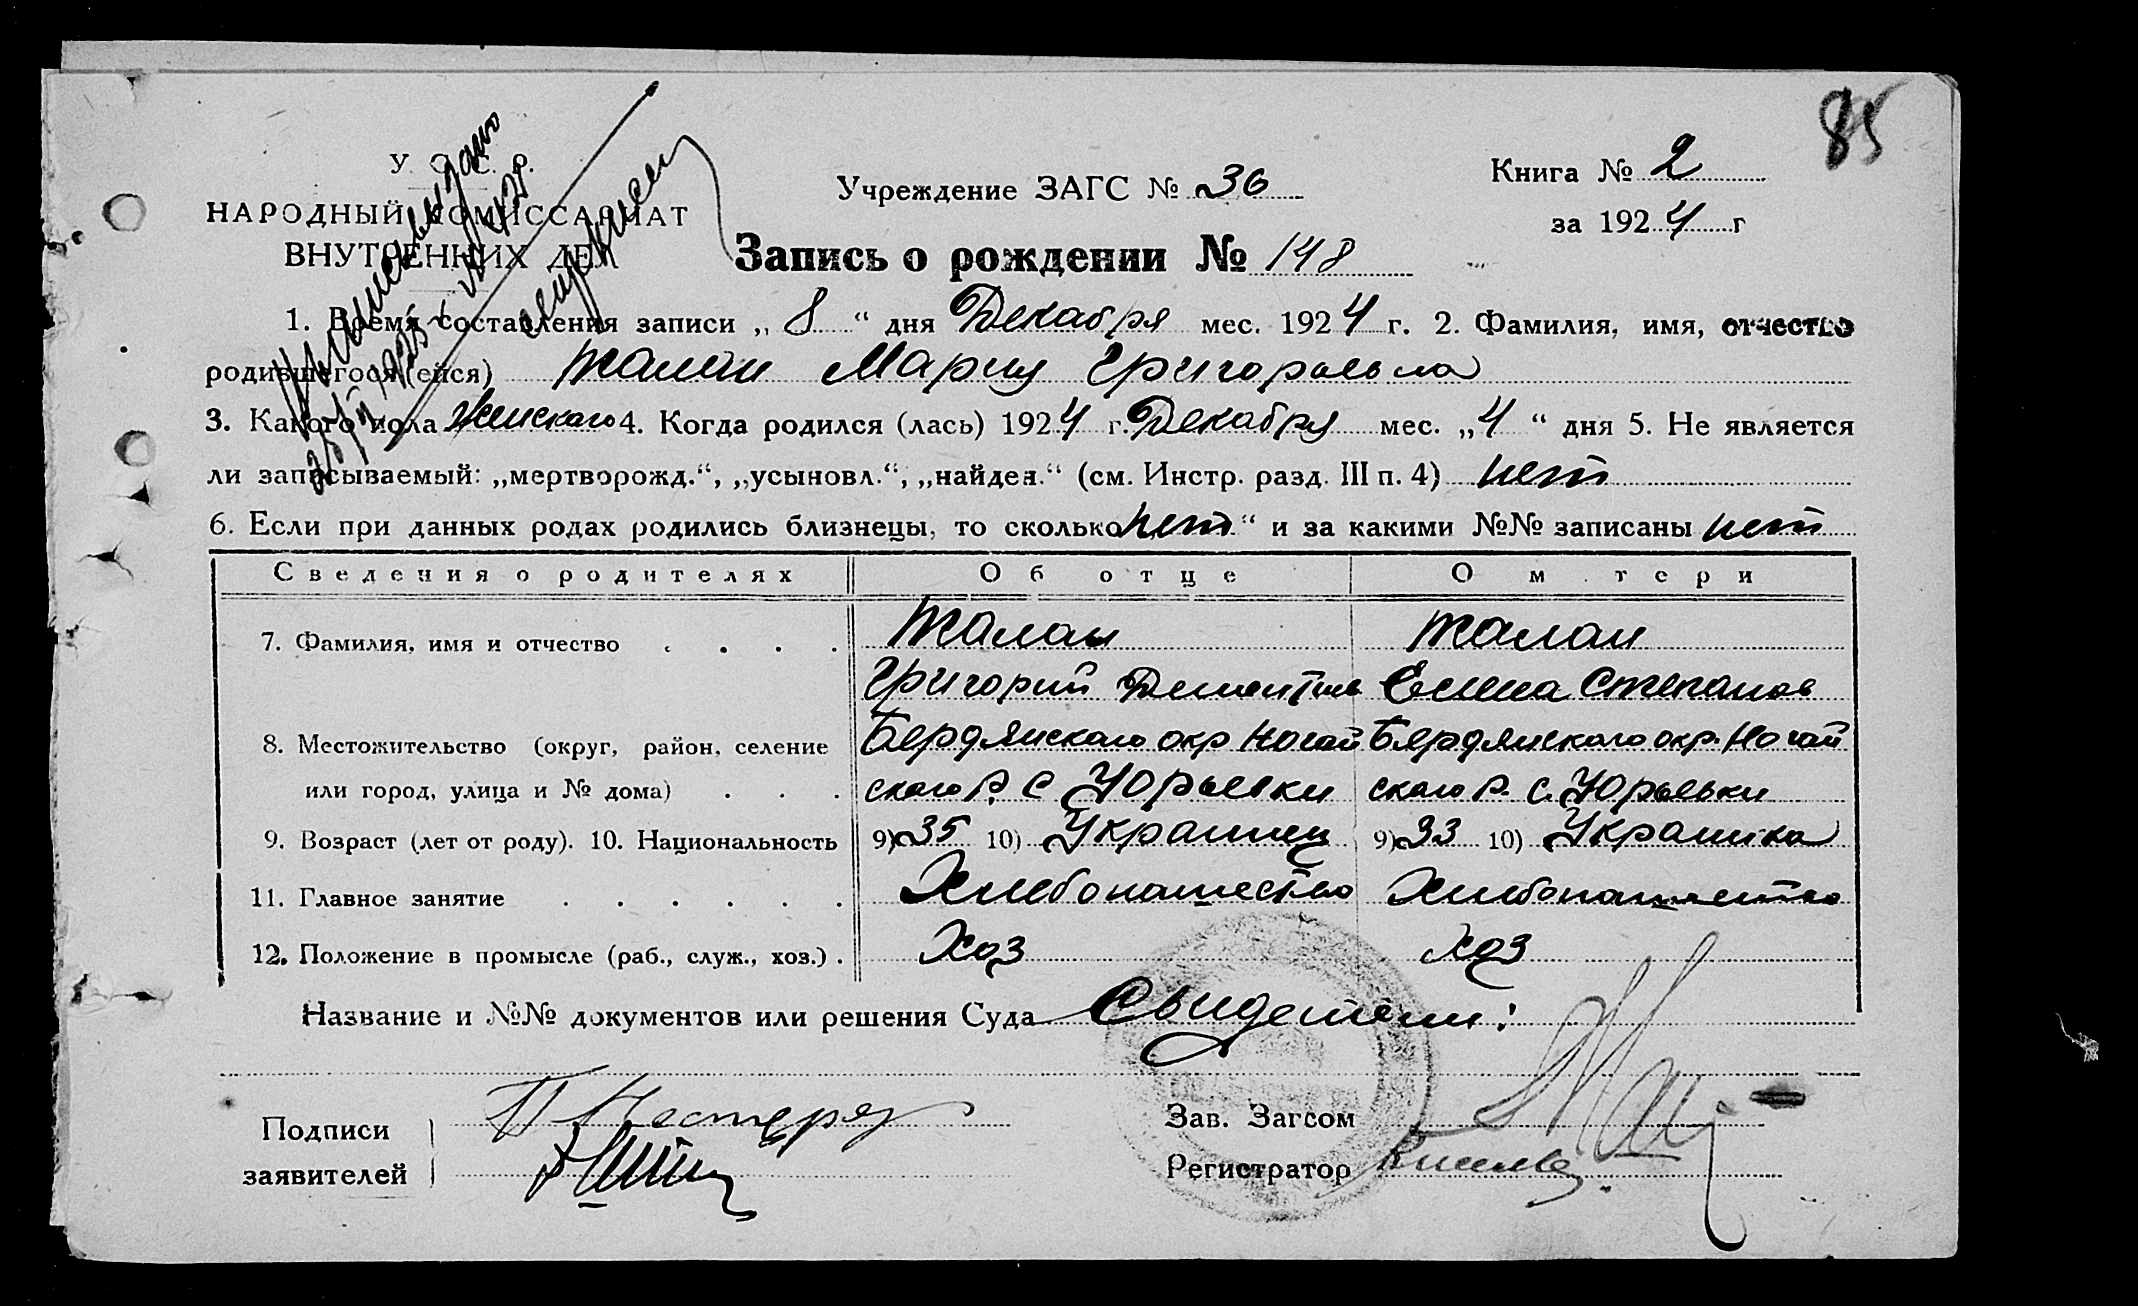 85
У. С. С. Р.
НАРОДНЫЙ КОМИССАРИАТ
ВНУТРЕННИХ ДЕЛ
Учреждение ЗАГС № 36
Книга № 2
за 1924 г
Запись о рождении № 148
1. Время составления записи „ 8 “ дня Декабря мес. 1924 г. 2. Фамилия, имя, отчество
родившегося (ейся) Жалан Мария Григорьевна
3. Какого пола Женскаго 4. Когда родился (лась) 1924 г. Декабря мес. „4“ дня 5. Не является
ли записываемый: „мертворожд.“, „усыновл.“, „найден.“ (см. Инстр. разд. III п. 4) нет
6. Если при данных родах родились близнецы, то сколько нет “ и за какими №№ записаны нет
Сведения о родителях Об отце О матери
7. Фамилия, имя и отчество . . . . Жалан Жалан
Григорий Дементьев Елена Степанов
8. Местожительство (округ, район, селение Бердянскаго окр Ногай Бердянскаго окр. Ногай
или город, улица и № дома) . . . скаго Р. с Юрьевки скаго Р. с. Юрьевки
9. Возраст (лет от роду). 10. Национальность 9) 35 10) Украинец 9) 33 10) Украинка
11. Главное занятие . . . . . . Хлебопашество Хлебопашество
12. Положение в промысле (раб., служ., хоз.) . Хоз Хоз
Название и №№ документов или решения Суда Свидетели:
Подписи
заявителей
Зав. Загсом
Регистратор